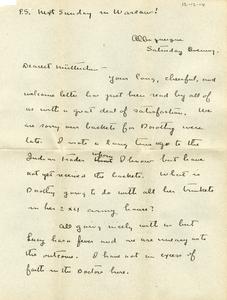 P.S. Next Sunday in Warsaw!
12-12-04
Albuquerque
Saturday Evening.
Dearest
Your long, cheerful, and
welcome letter has just been read by all of
us with a great deal of satisfaction. We
are sorry our baskets for Dorothy were
late. I wrote a long time ago to the
Indian trader whom I know but have
not yet received the baskets. What is
Dorothy going to do with all her trinkets
in her 2x4 army house?
All going nicely with us but
Lucy has a fever and we are uneasy as to
the outcome. I have not an excess of
faith in the Doctors here.